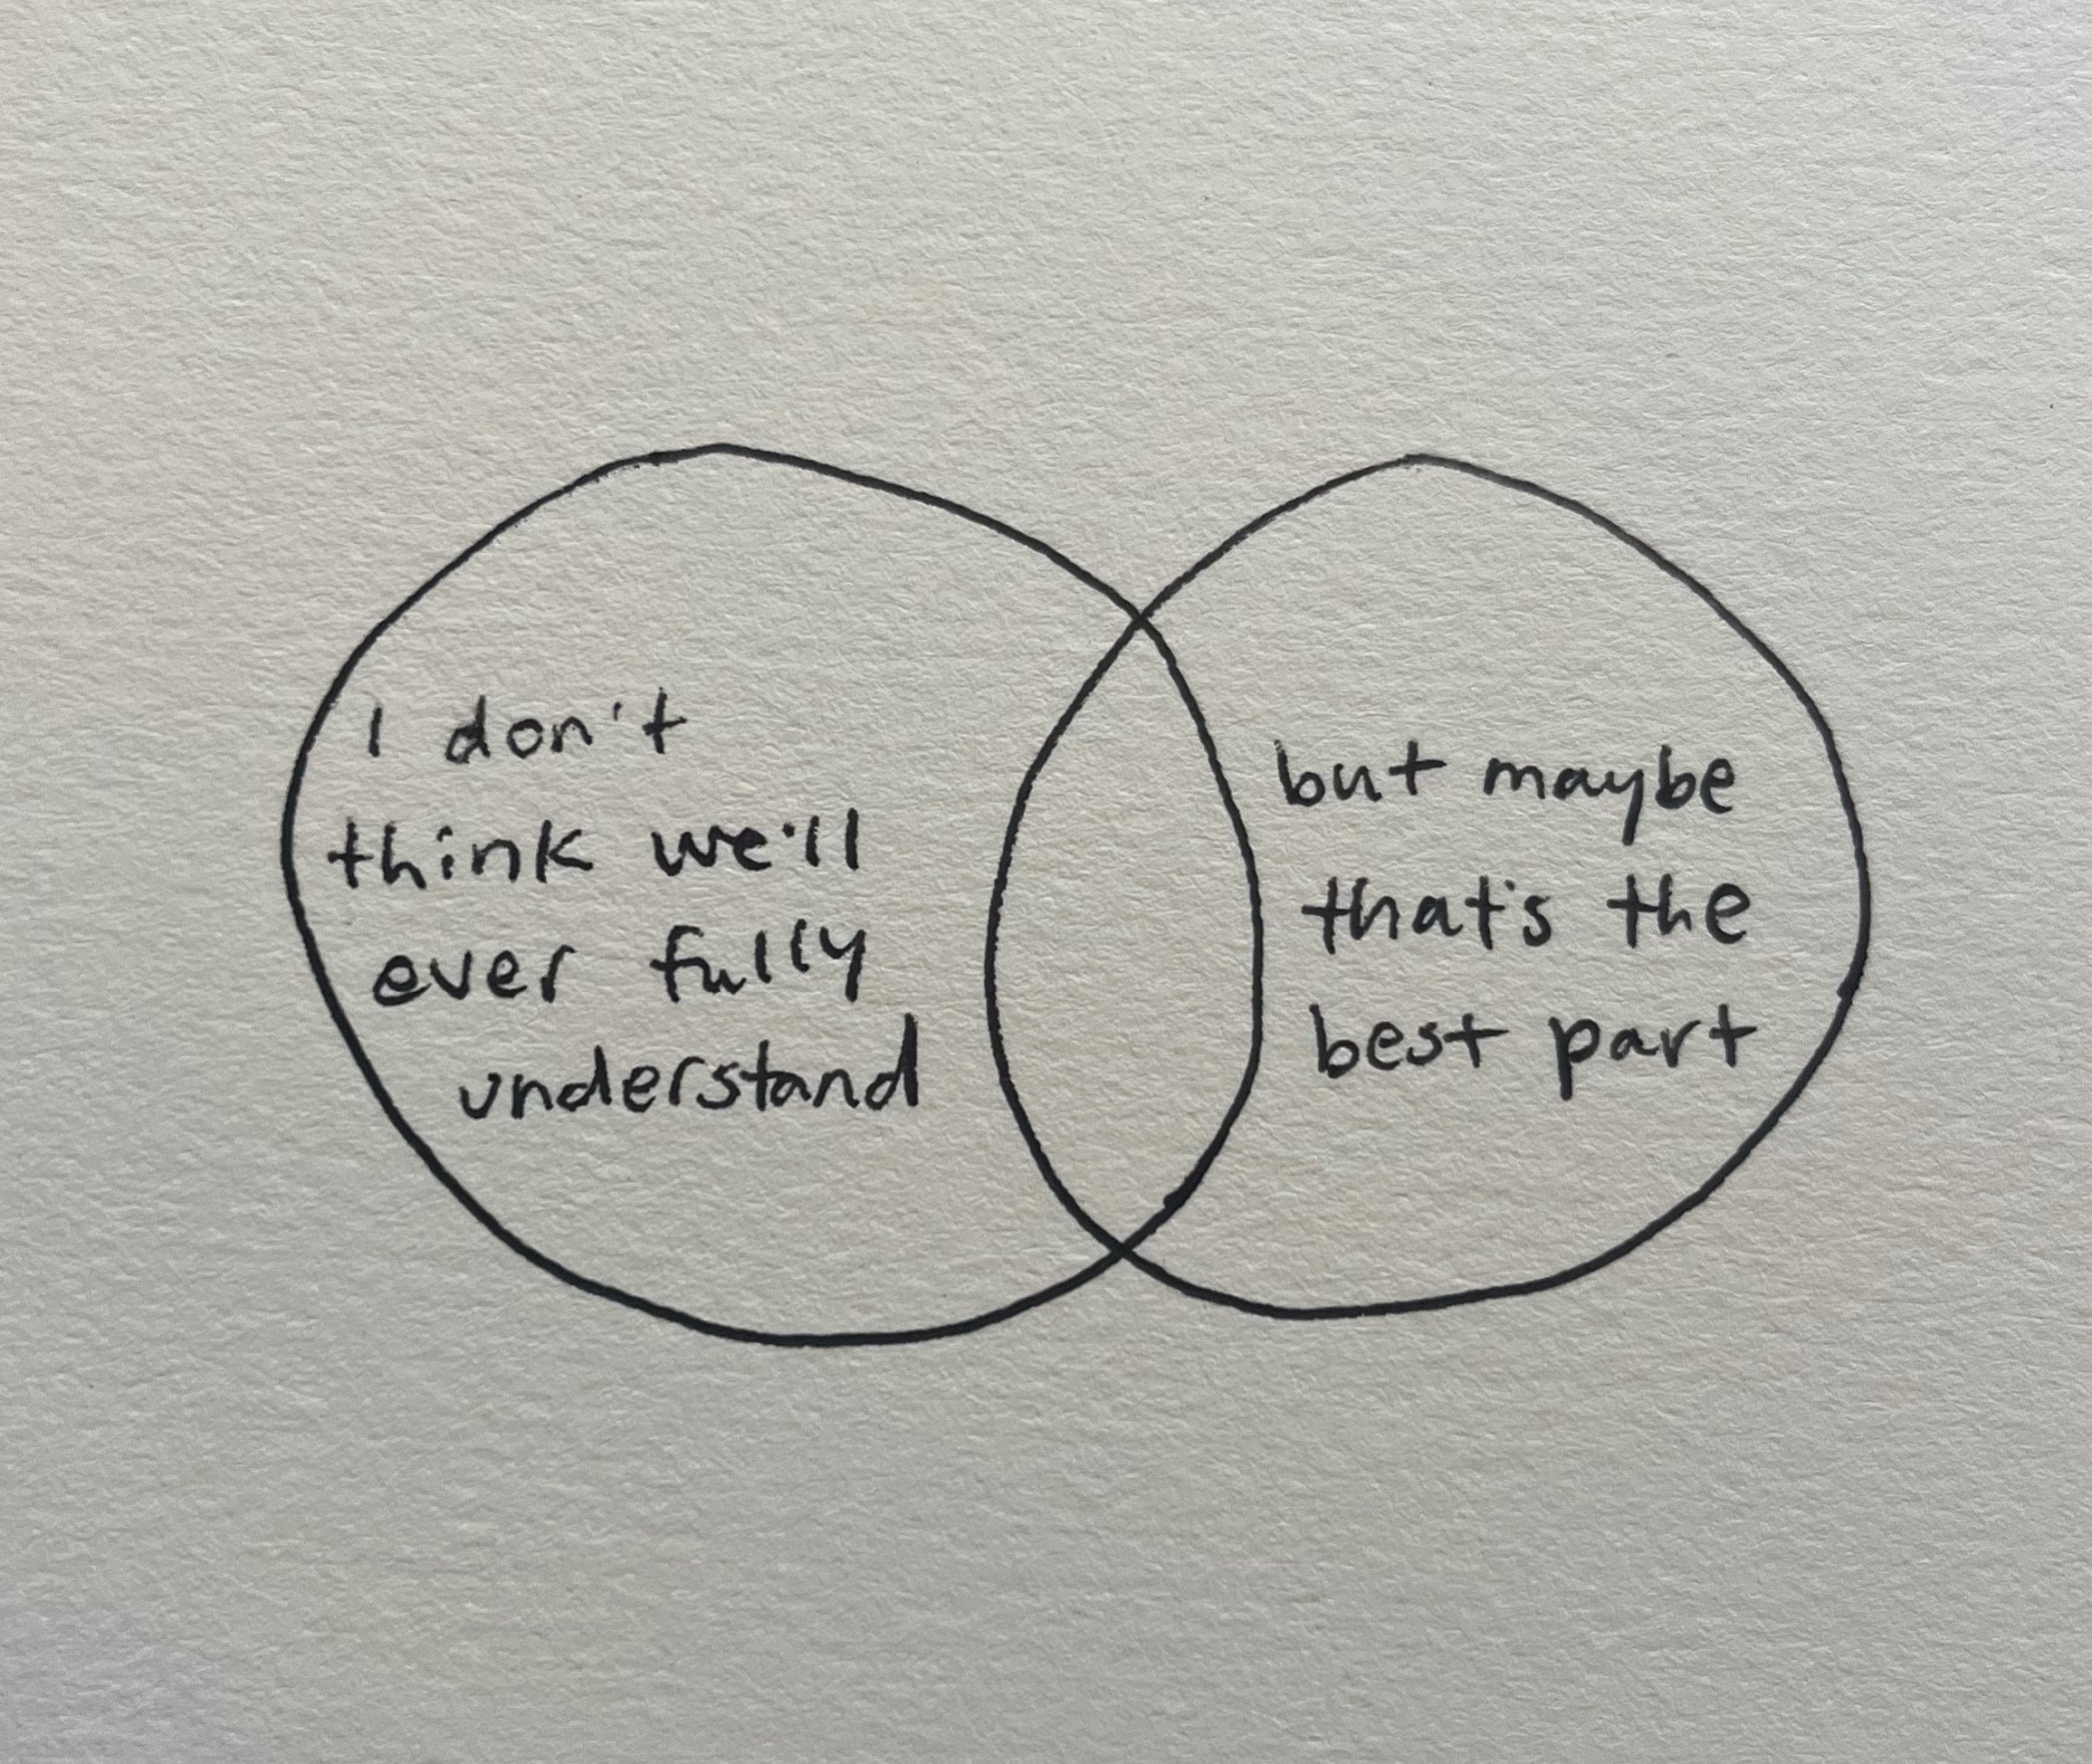 I don't
think we'll
ever fully
understand
but maybe
that's the
best part